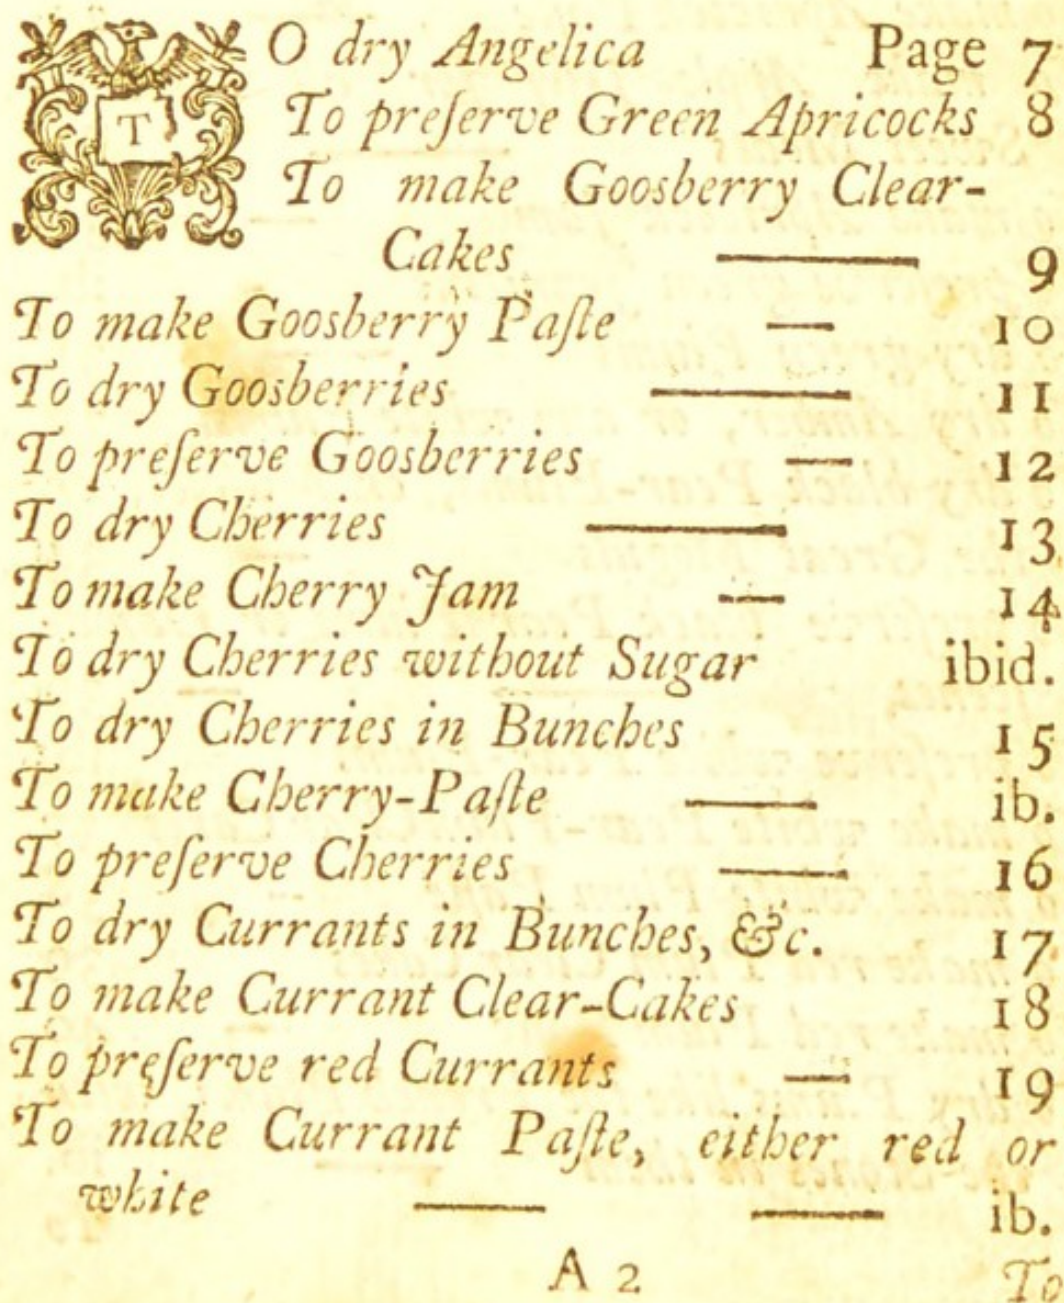 TO dry Angelica Page 7
To preſerve Green Apricocks 8
To make Goosberry Clear-
Cakes —— 9
To make Goosberry Paſte — 10
To dry Goosberries —— 11
To preſerve Goosberries — 12
To dry Cherries —— 13
To make Cherry Jam — 14
To dry Cherries without Sugar ibid.
To dry Cherries in Bunches 15
To make Cherry-Paſte — ib.
To preſerve Cherries — 16
To dry Currants in Bunches, &c. 17
To make Currant Clear-Cakes 18
To preſerve red Currants — 19
To make Currant Paſte, either red or
white — — ib.
A 2 To